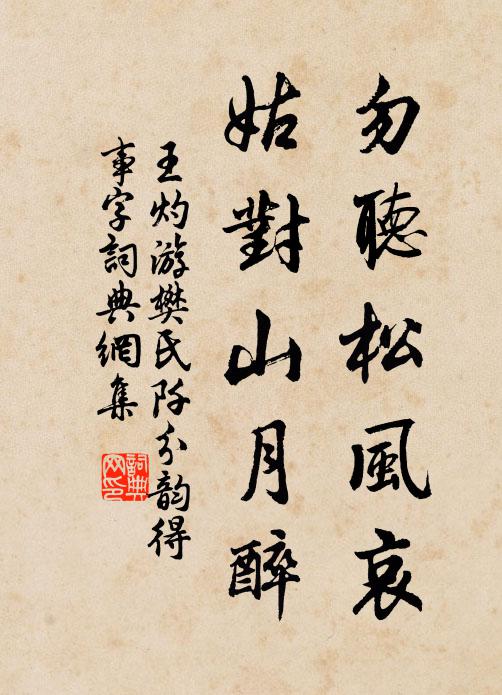 勿聽松風哀
姑對山月醉
王灼游樊氏阡分韵得
事字詞典網集
詞典網印